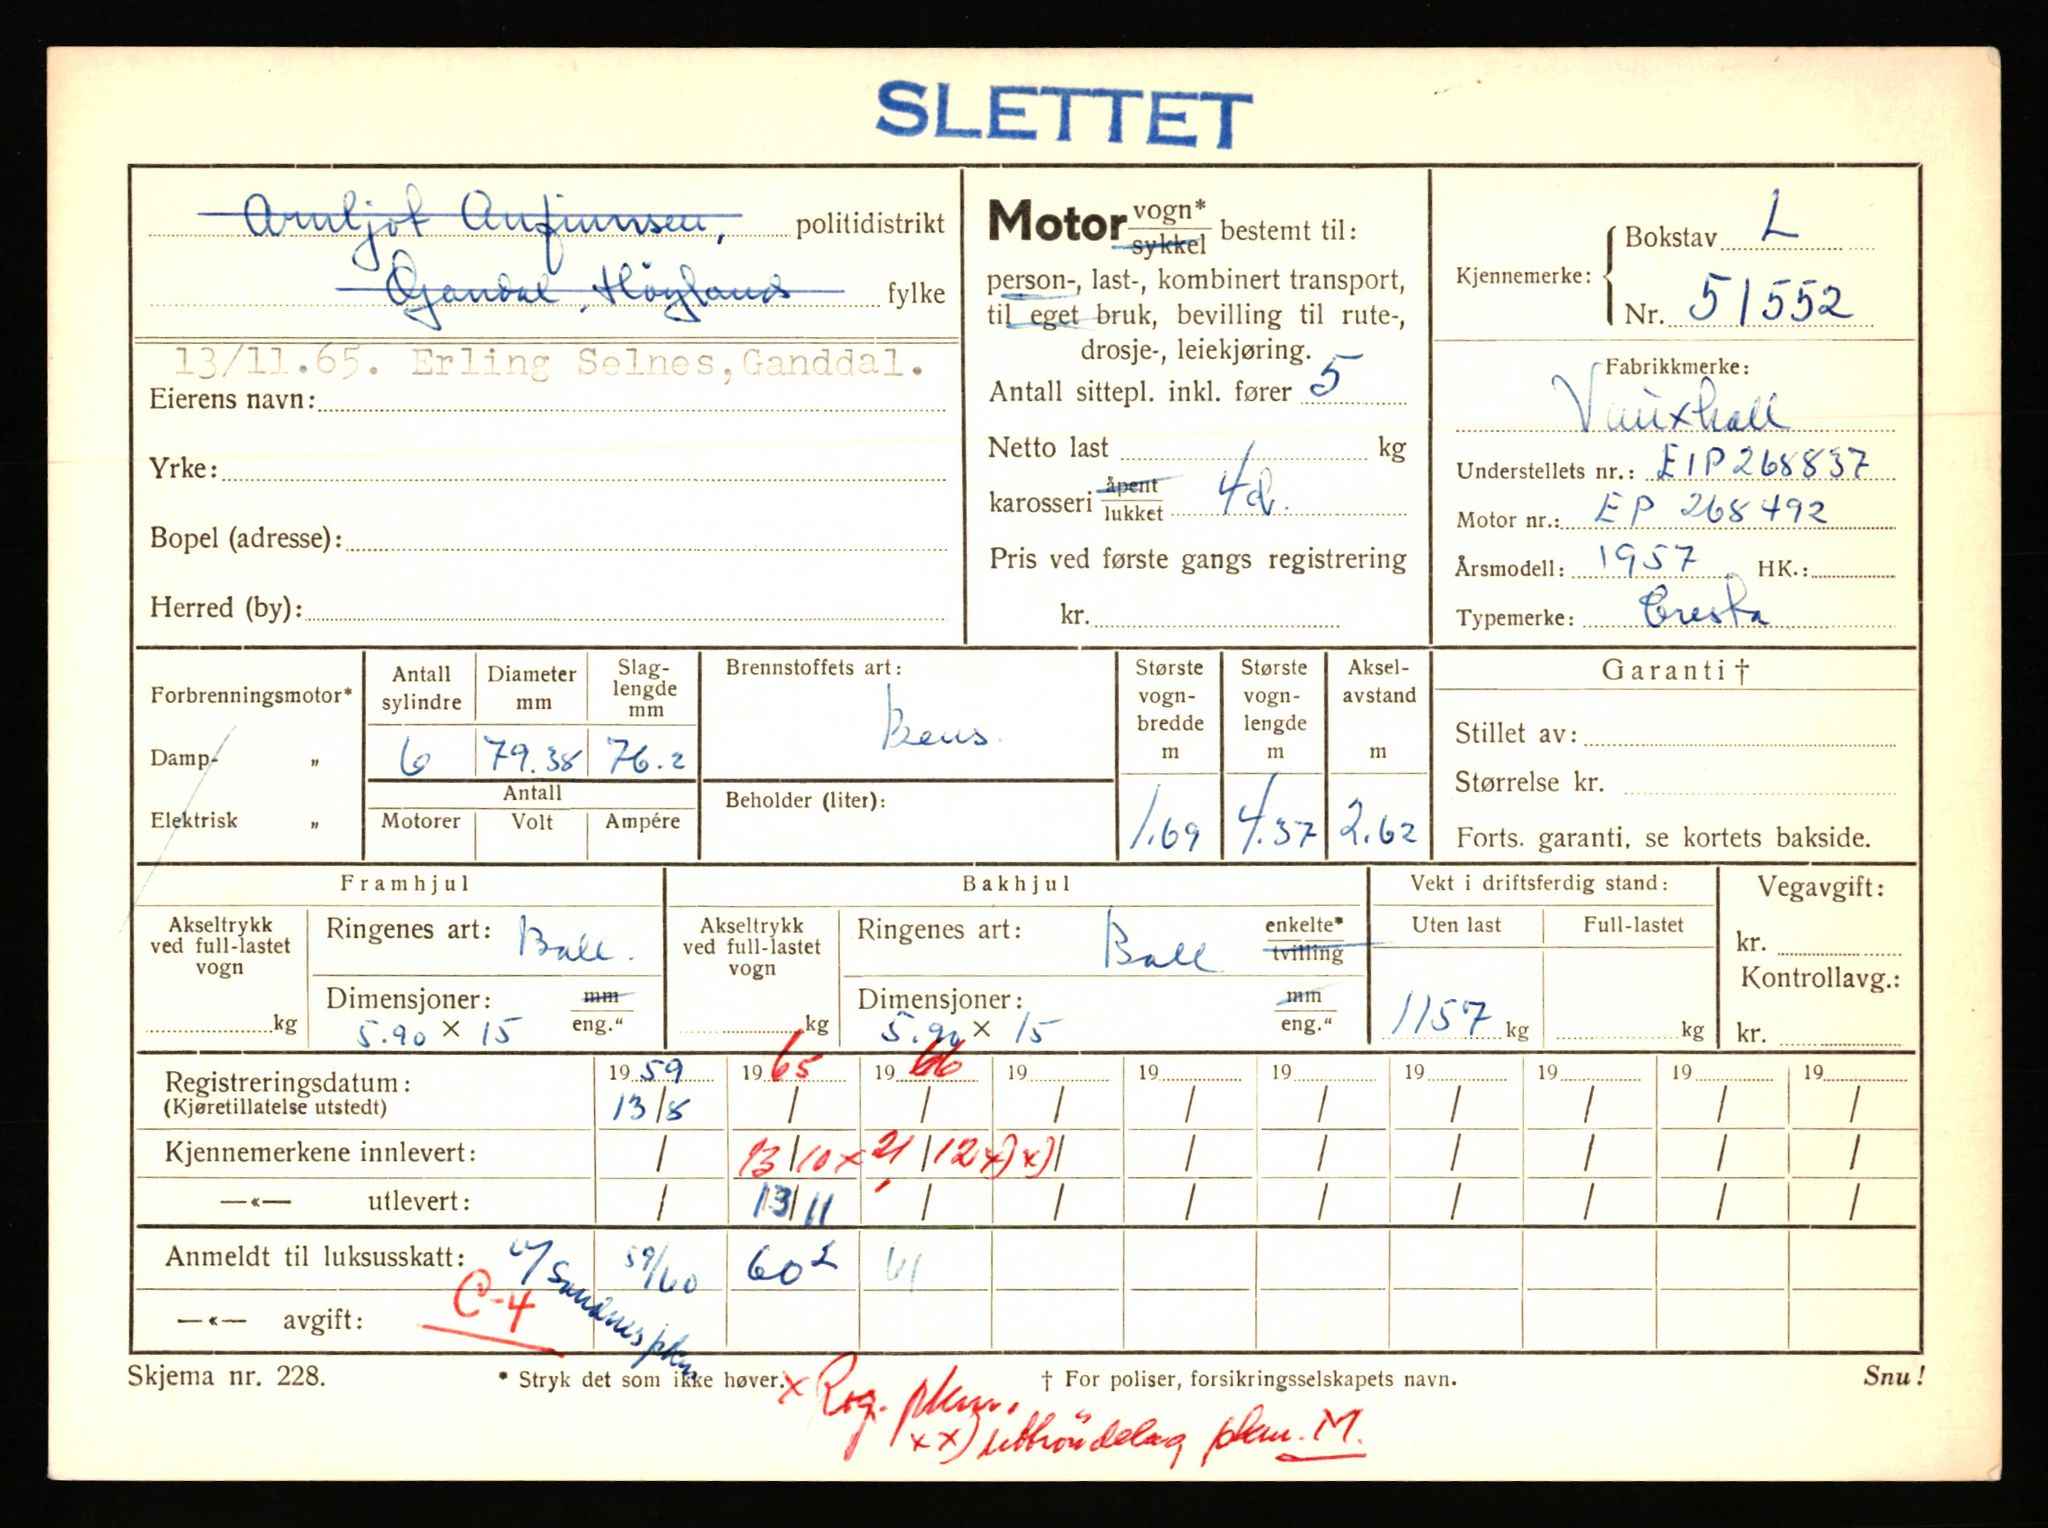 SLETTET
Arnljot Anfinnsen, politidistrikt
Gandal, Høyland fylke
13/11.65. Erling Selnes, Ganddal.
Eierens navn:
Yrke:
Bopel (adresse):
Herred (by):
Motor vogn* / sykkel bestemt til:
person-, last-, kombinert transport,
til eget bruk, bevilling til rute-,
drosje-, leiekjøring.
Antall sittepl. inkl. fører 5
Netto last kg
karosseri åpent / lukket 4d.
Pris ved første gangs registrering
kr.
Kjennemerke: Bokstav L
Nr. 51552
Fabrikkmerke:
Vauxhall
Understellets nr.: EIP268837
Motor nr.: EP 268492
Årsmodell: 1957 HK.:
Typemerke: Cresta
Forbrenningsmotor*
Damp- „
Elektrisk „
Antall sylindre 6
Diameter mm 79.38
Slag-lengde mm 76.2
Antall
Motorer Volt Ampére
Brennstoffets art:
Bens.
Beholder (liter):
Største vogn-bredde m 1.69
Største vogn-lengde m 4.37
Aksel-avstand m 2.62
Garanti †
Stillet av:
Størrelse kr.
Forts. garanti, se kortets bakside.
Framhjul
Akseltrykk ved full-lastet vogn kg
Ringenes art: Ball.
Dimensjoner: mm / eng."
5.90 × 15
Bakhjul
Akseltrykk ved full-lastet vogn kg
Ringenes art: Ball enkelte* / tvilling
Dimensjoner: mm / eng."
5.90 × 15
Vekt i driftsferdig stand:
Uten last Full-lastet
1157 kg kg
Vegavgift:
kr.
Kontrollavg.:
kr.
Registreringsdatum: 1959 1965 1966 19 19 19 19 19 19 19
(Kjøretillatelse utstedt) 13/8 / / / / / / / / /
Kjennemerkene innlevert: / 13/10 x 21/12 x) x) / / / / / / /
—«— utlevert: / 13/11 / / / / / / / /
Anmeldt til luksusskatt: 59/60 60L 61
Sandnes pkm
C-4
—«— avgift:
Skjema nr. 228. * Stryk det som ikke høver. † For poliser, forsikringsselskapets navn. Snu!
x Rog. pkm.
xx) uttröndelag pkm. M.